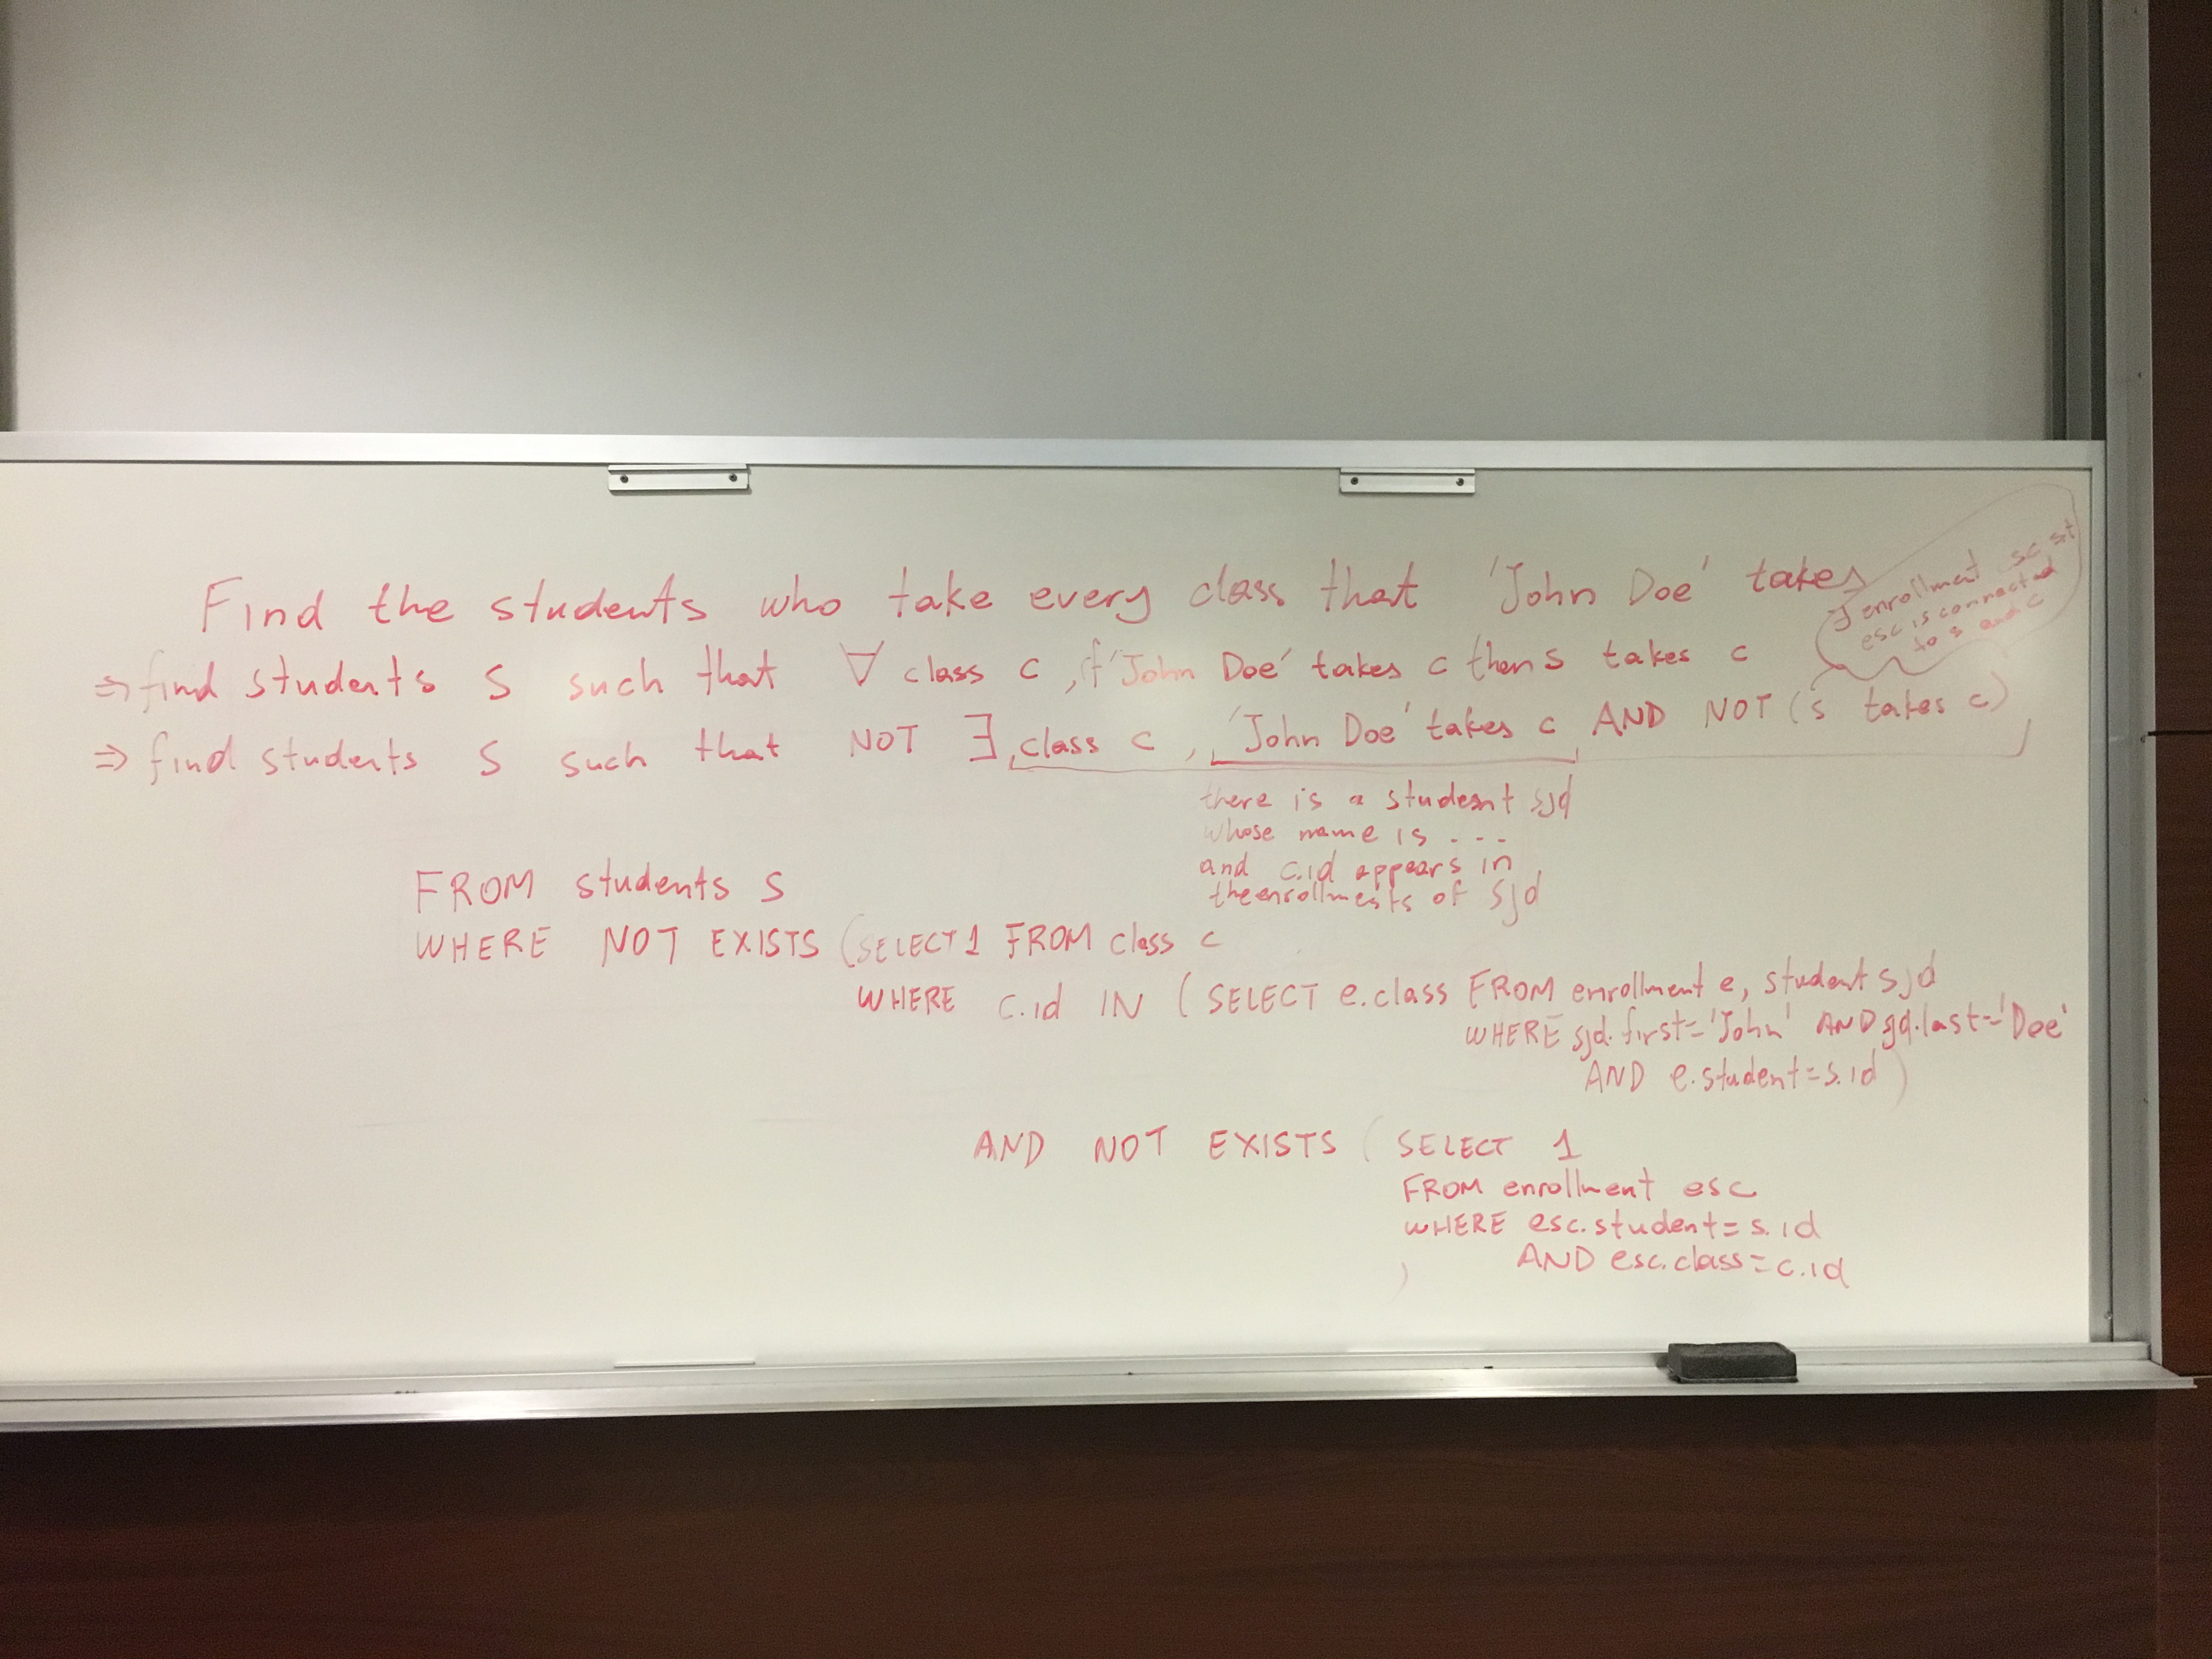 Find the students who take every class that 'John Doe' takes
∃ enrollment sc st
esc is connected
to s and c
⇒ find students S such that ∀ class c, if 'John Doe' takes c then s takes c
⇒ find students S such that NOT ∃ class c, 'John Doe' takes c AND NOT (s takes c)
there is a student sjd
whose name is ...
and c.id appears in
the enrollments of sjd
FROM students S
WHERE NOT EXISTS (SELECT 1 FROM class c
WHERE c.id IN (SELECT e.class FROM enrollment e, student sjd
WHERE sjd.first='John' AND sjd.last='Doe'
AND e.student=s.id)
AND NOT EXISTS (SELECT 1
FROM enrollment esc
WHERE esc.student=s.id
AND esc.class=c.id
)